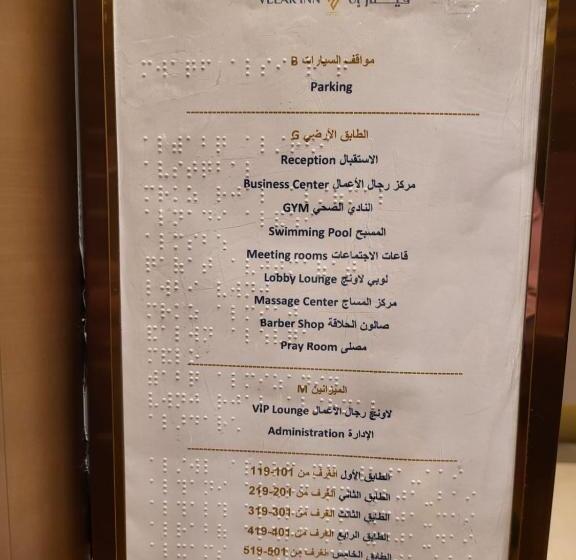 VELAR INN
مواقف السيارات B
Parking
الطابق الأرضي G
الاستقبال Reception
مركز رجال الأعمال Business Center
النادي الصحي GYM
المسبح Swimming Pool
قاعات الاجتماعات Meeting rooms
لوبي لاونج Lobby Lounge
مركز المساج Massage Center
صالون الحلاقة Barber Shop
مصلى Pray Room
الميزانين M
لاونج رجال الأعمال ViP Lounge
الإدارة Administration
الطابق الأول الغرف من 101-119
الطابق الثاني الغرف من 201-219
الطابق الثالث الغرف من 301-319
الطابق الرابع الغرف من 401-419
الطابق الخامس الغرف من 501-519